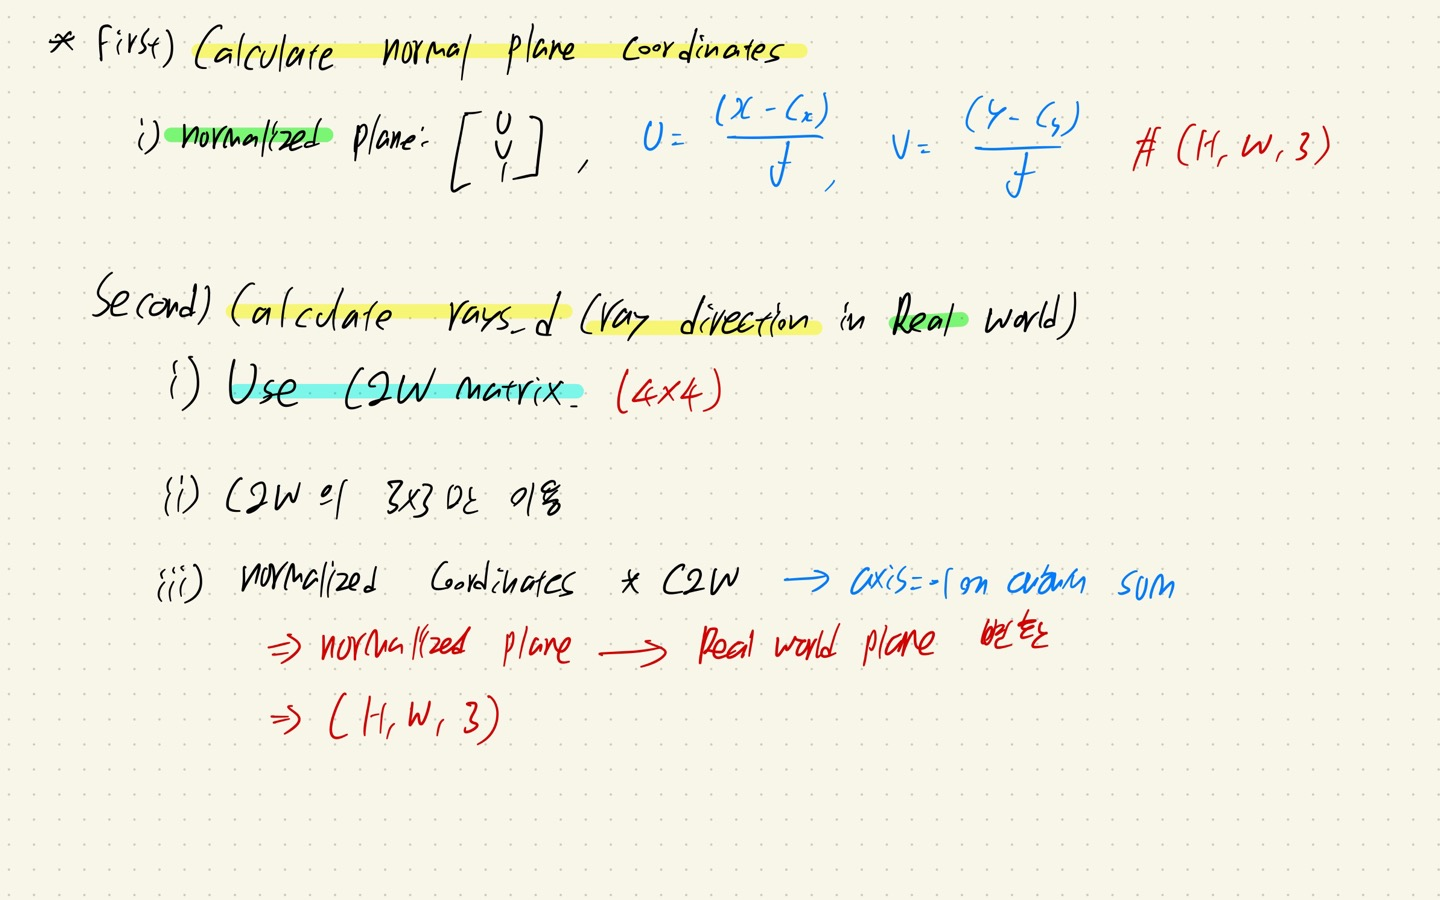 * First) Calculate normal plane coordinates
i) normalized plane: [U V 1], U = (x - Cx) / f, V = (y - Cy) / f # (H, W, 3)
Second) Calculate rays_d (ray direction in Real world)
i) Use C2W matrix. (4x4)
ii) C2W 의 3x3 만 이용
iii) normalized Coordinates * C2W → axis=-1 on sum
⇒ normalized plane → Real world plane 변환
⇒ (H, W, 3)